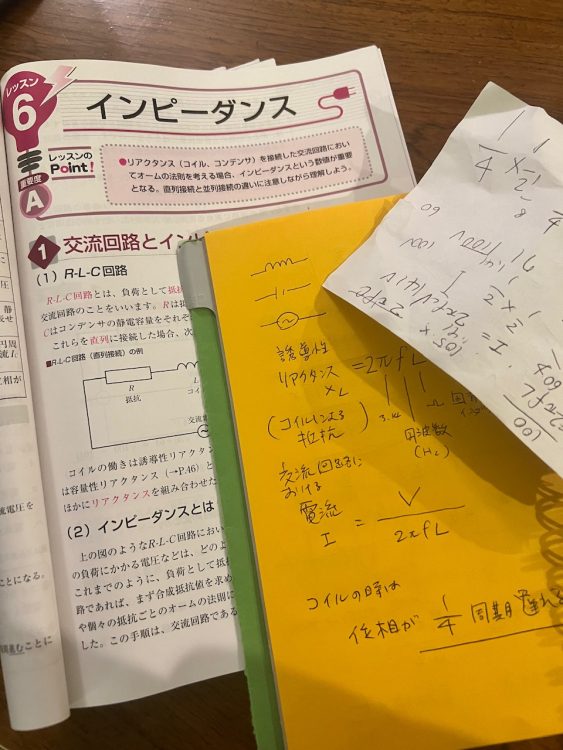 レッスン
6
インピーダンス
レッスンの
Point!
重要度
A
●リアクタンス（コイル、コンデンサ）を接続した交流回路におい
てオームの法則を考える場合、インピーダンスという数値が重要
となる。直列接続と並列接続の違いに注意しながら理解しよう。
1 交流回路とイン
(1) R-L-C回路
R-L-C回路とは、負荷として抵
交流回路のことをいいます。Rは抵
Cはコンデンサの静電容量をそれぞれ
これらを直列に接続した場合、次
■R-L-C回路（直列接続）の例
R
抵抗
L
コイ
交流
コイルの働きは誘導性リアクタン
は容量性リアクタンス（→P.46）と
ほかにリアクタンスを組み合わせた
(2) インピーダンスとは
上の図のようなR-L-C回路におい
の負荷にかかる電圧などは、どのよ
これまでのように、負荷として抵
路であれば、まず合成抵抗値を求め
や個々の抵抗ごとのオームの法則に
した。この手順は、交流回路である
流電圧を
ことになる。
ことに
誘導性
リアクタンス = 2πfL
XL
(コイルによる
抵抗)
3.14
周波数
(Hz)
交流回路に
おける
電流
I = V
2πfL
コイルの時は
位相が 1/4 周期遅れる
1
4
100V
I =
2πfL
100